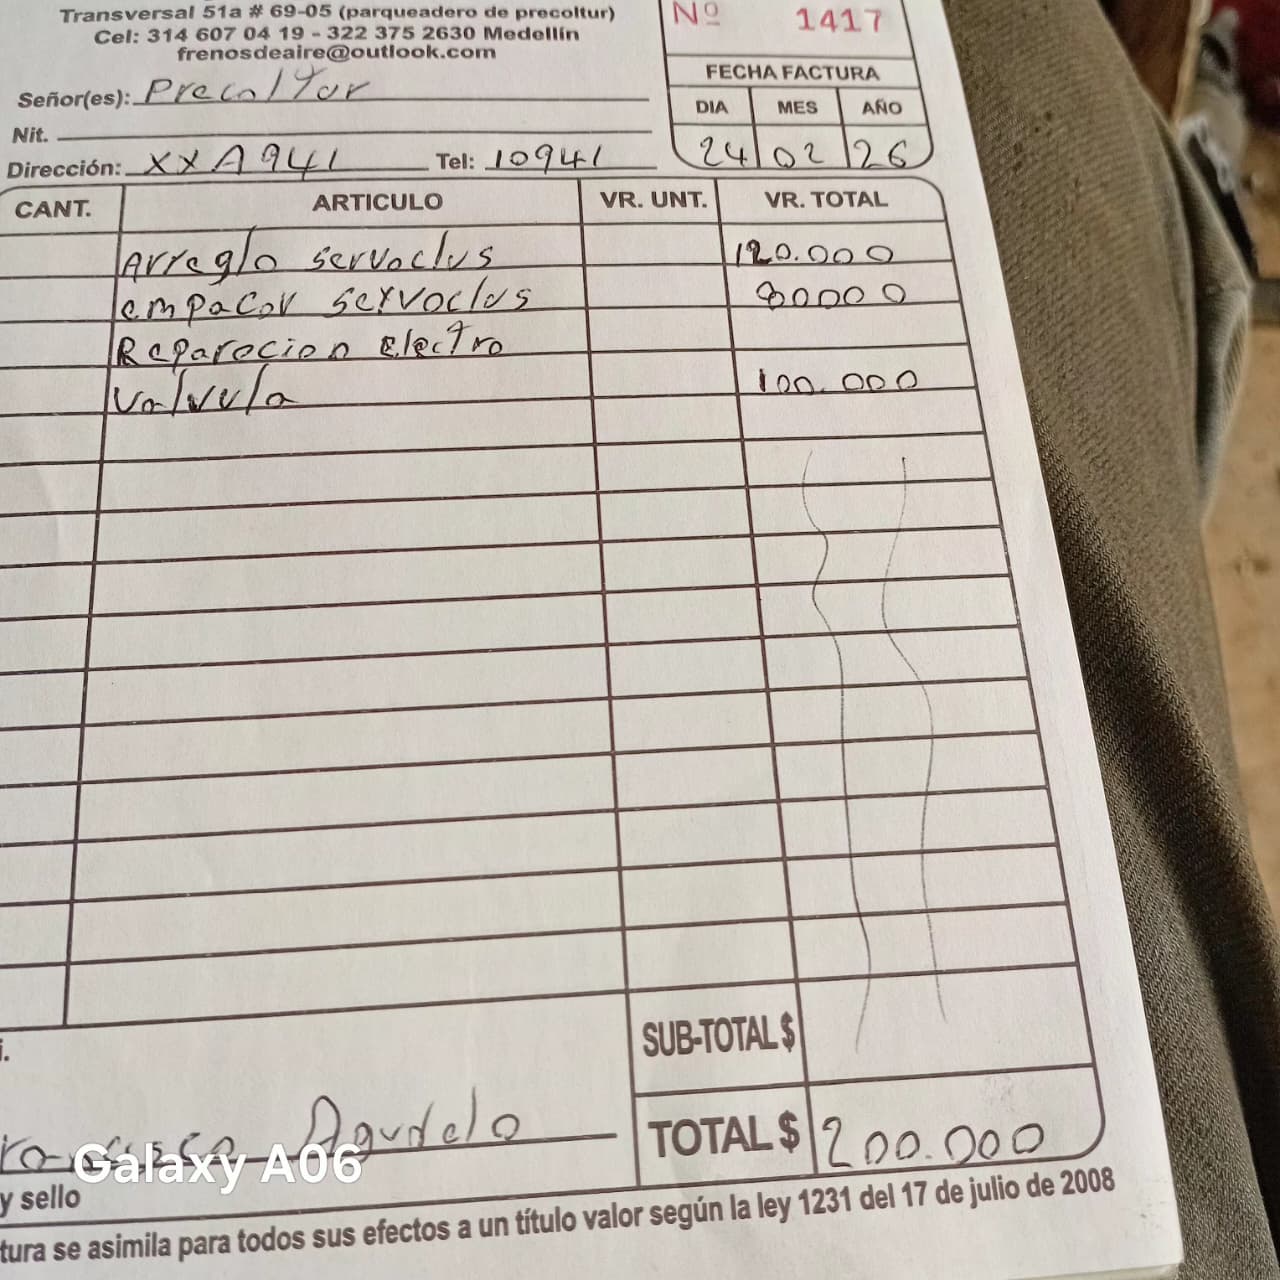 Transversal 51a # 69-05 (parqueadero de precoltur)
Cel: 314 607 04 19 - 322 375 2630 Medellín
frenosdeaire@outlook.com
Nº 1417
FECHA FACTURA
DIA MES AÑO
24 02 26
Señor(es): Precoltur
Nit.
Dirección: XXA941 Tel: 10941
CANT. ARTICULO VR. UNT. VR. TOTAL
Arreglo servoclus 120.000
empacar servoclus 80000
Reparacion electro
valvula 100.000
SUB-TOTAL $
TOTAL $ 200.000
Agudelo
Galaxy A06
y sello
tura se asimila para todos sus efectos a un título valor según la ley 1231 del 17 de julio de 2008